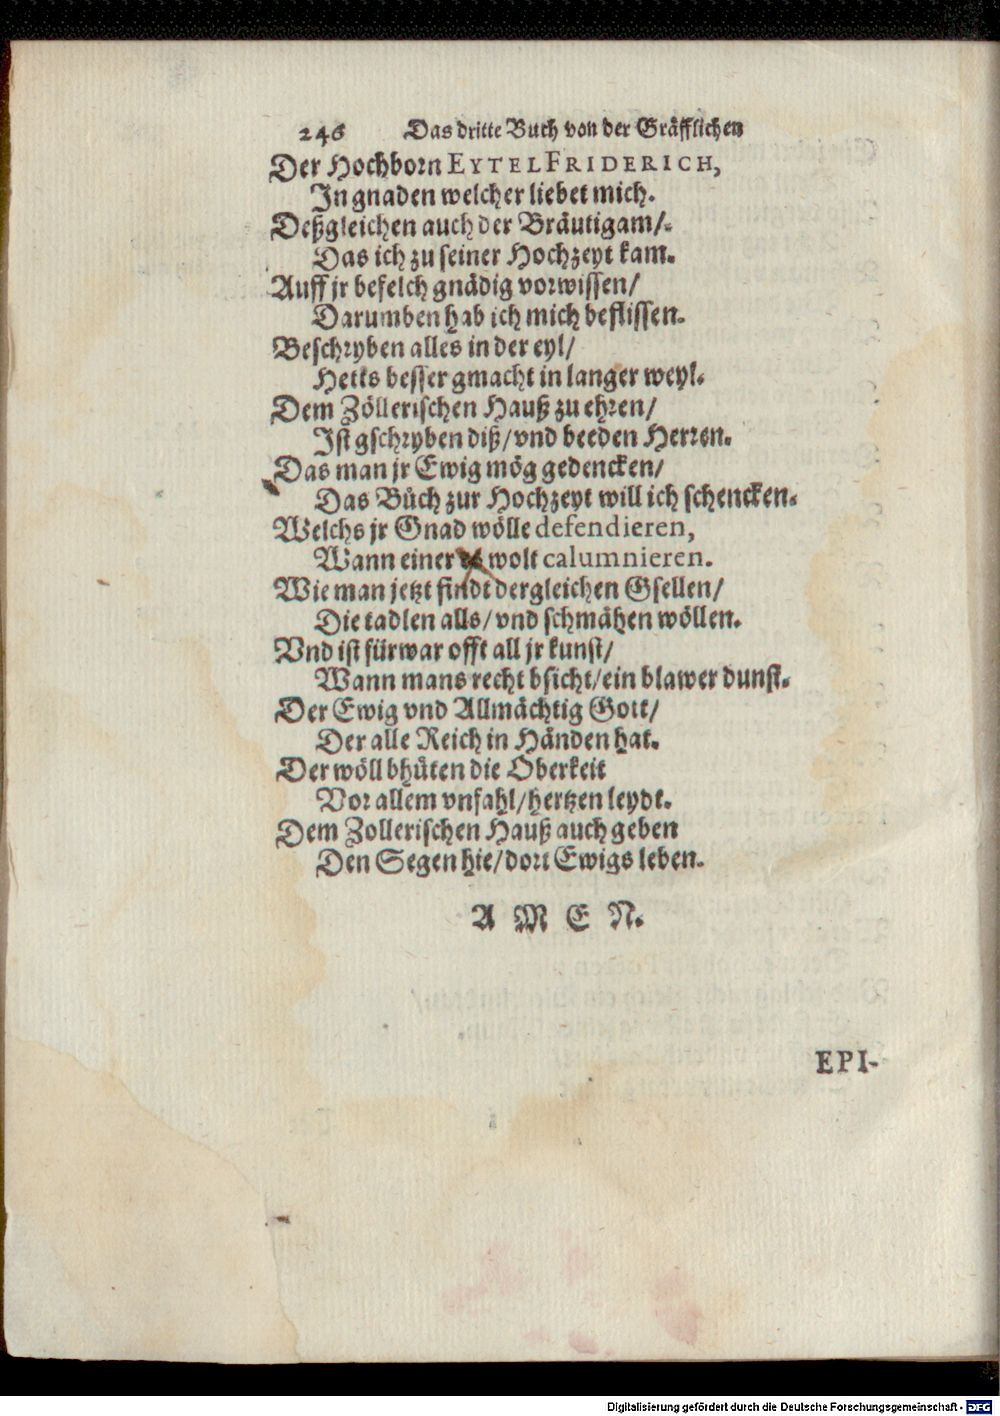 246 Das dritte Buch von der Gräfflichen
Der Hochborn EYTEL FRIDERICH,
In gnaden welcher liebet mich.
Deßgleichen auch der Bräutigam/
Das ich zu seiner Hochzeyt kam.
Auff jr befelch gnädig vorwissen/
Darumben hab ich mich beflissen.
Beschryben alles in der eyl/
Hetts besser gmacht in langer weyl.
Dem Zöllerischen Hauß zu ehren/
Ist gschryben diß/ vnd beeden Herren.
Das man jr Ewig mög gedencken/
Das Büch zur Hochzeyt will ich schencken.
Welchs jr Gnad wölle defendieren,
Wann einer wolt calumnieren.
Wie man jetzt findt dergleichen Gsellen/
Die tadlen alls/ vnd schmähen wöllen.
Vnd ist fürwar offt all jr kunst/
Wann mans recht bsicht/ ein blawer dunst.
Der Ewig vnd Allmächtig Gott/
Der alle Reich in Händen hat.
Der wöll bhüten die Oberkeit
Vor allem vnfahl/ hertzen leydt.
Dem Zollerischen Hauß auch geben
Den Segen hie/ dort Ewigs leben.
A M E N.
EPI-
Digitalisierung gefördert durch die Deutsche Forschungsgemeinschaft - DFG